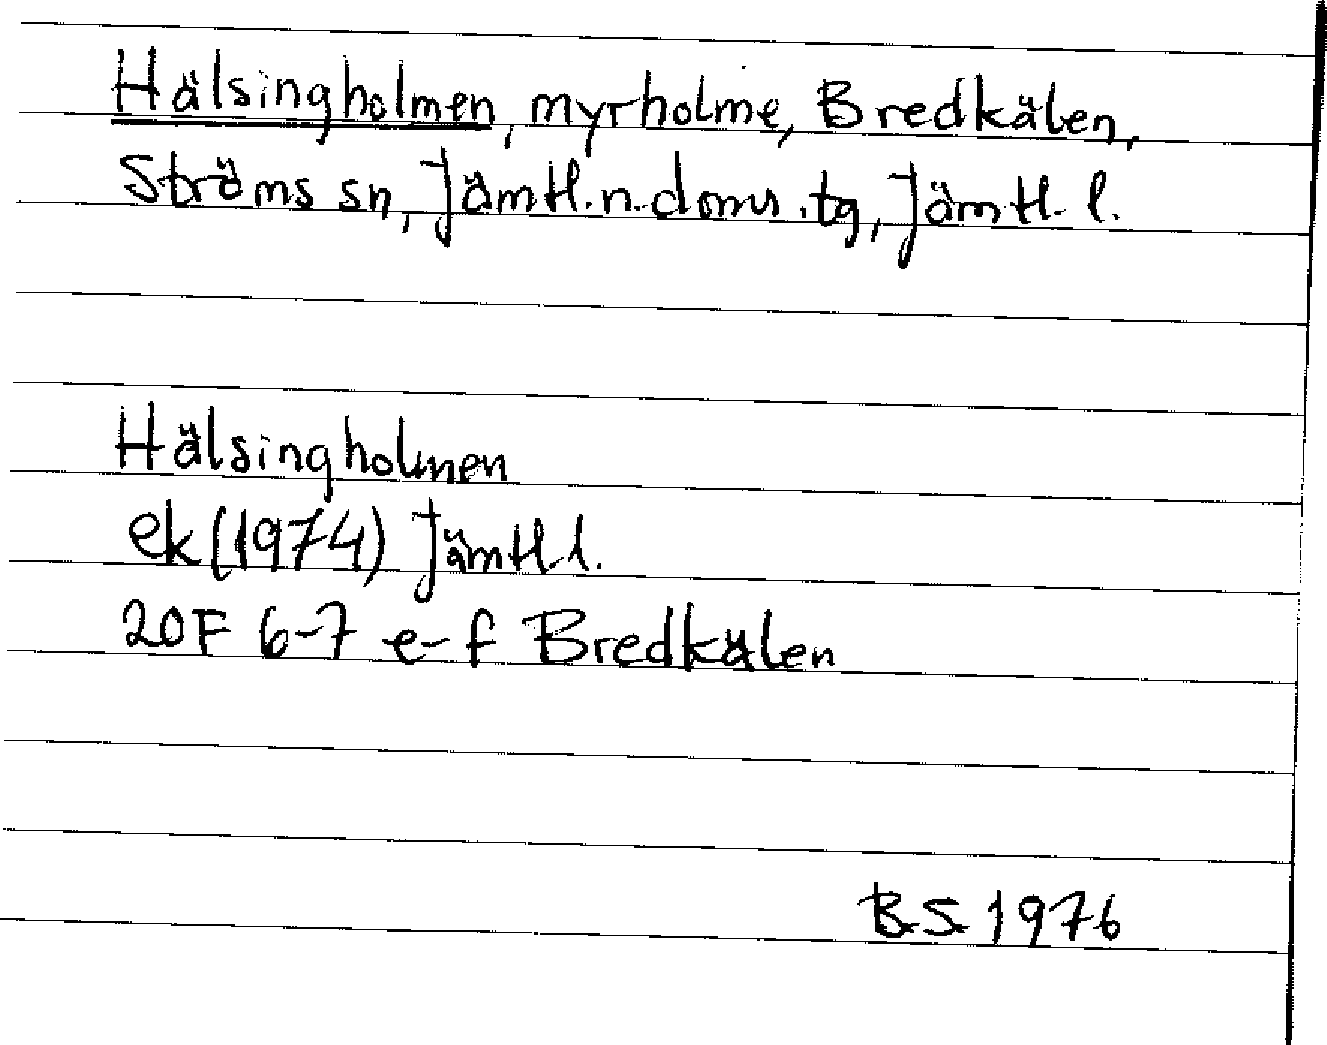 Hälsingholmen, myrholme, Bredkälen,
Ströms sn, Jämtl.n.doms.tg, Jämtl. l.
Hälsingholmen
ek (1974) Jämtl.l.
20F 6-7 e-f Bredkälen
B.S. 1976